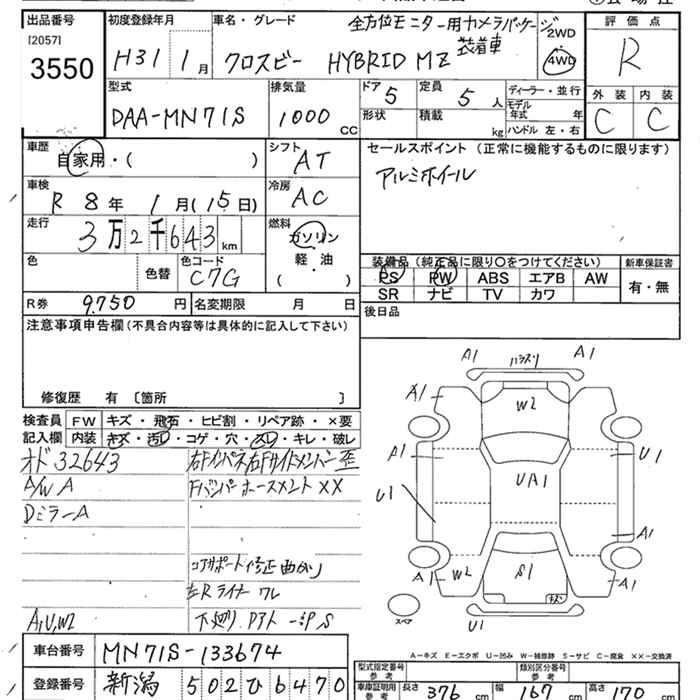 出品番号
[2057]
3550
初度登録年月
H31 1月
車名・グレード
全方位モニター用カメラパッケージ
装着車
クロスビー HYBRID MZ
2WD
4WD
評価点
R
外装 内装
C C
型式
DAA-MN71S
排気量
1000 CC
ドア 5
形状
定員 5人
積載 kg
ディーラー・並行
モデル年式 年
ハンドル 左・右
車歴
自家用・( )
シフト AT
車検
R 8年 1月(15日)
冷房 AC
走行
3万2千643km
燃料
ガソリン
軽・油
( )
色
色替
色コード
C7G
R券 9,750円
名変期限 月 日
セールスポイント (正常に機能するものに限ります)
アルミホイール
装備品 (純正品に限り○をつけてください)
PS PW ABS エアB AW
SR ナビ TV カワ
新車保証書
有・無
後日品
注意事項申告欄(不具合内容等は具体的に記入して下さい)
修復歴 有 〔箇所 〕
検査員
記入欄
FW キズ・飛石・ヒビ割・リペア跡・×要
内装 キズ・汚レ・コゲ・穴・スレ・キレ・破レ
オド 32643
A/W A
DミラーA
A1,U1,W2
右Fインパネ右Fサイドメンバー歪
Fバンパーホースメント XX
コアサポート修正曲がり
左Rライナーワレ
A1 A1
A1
W2
A1
U1
U1
UA1
A1
A1
W2
S1
A1
U1
スペア
A−キズ E−エクボ U−凹み W−補修跡 S−サビ C−腐食 XX−交換済
車台番号 MN71S-133674
登録番号 新潟 502ひ6470
型式指定番号
参考
類別区分番号
参考
車庫証明用
参考
長さ 376 cm
幅 167 cm
高さ 170 cm